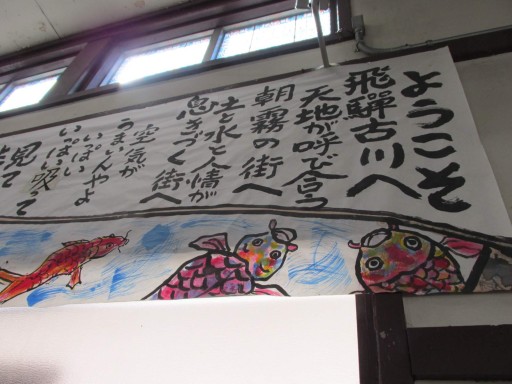 ようこそ
飛驒古川へ
天地が呼び合う
朝霧の街へ
土と水と人情が
息きづく街へ
空気が
うまいんやよ
いっぱい
いっぱい吸って
観て